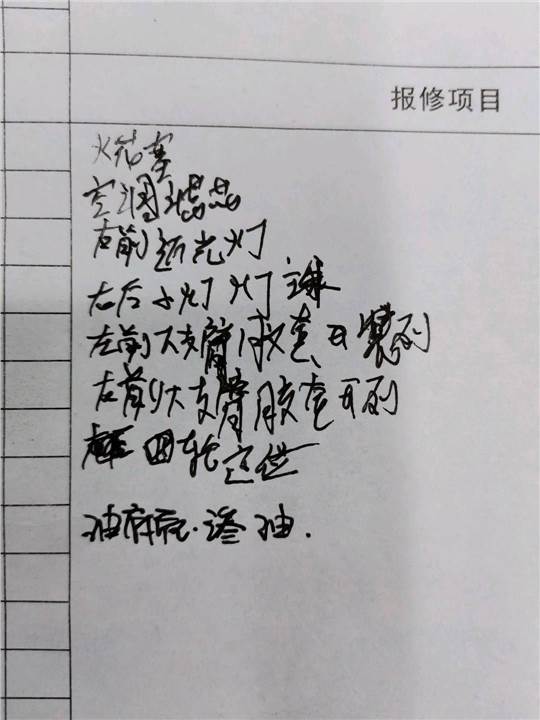 报修项目
火花塞
空调滤芯
右前近光灯
右后小灯灯球
左前下支臂胶套开裂
右前下支臂胶套开裂
四轮定位
油底壳.渗油.